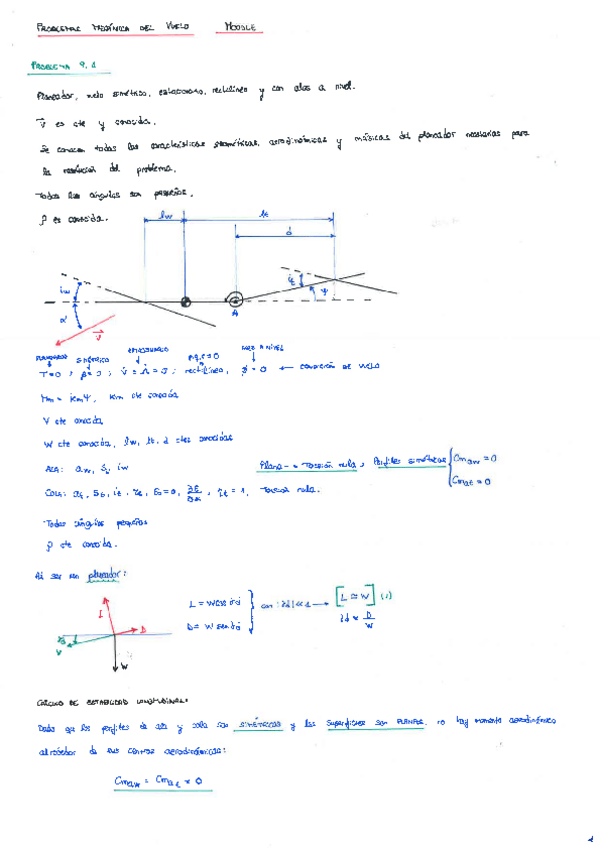 PROBLEMAS MECÁNICA DEL VUELO MOODLE
PROBLEMA 9.1
Planeador, vuelo simétrico, estacionario, rectilíneo y con alas a nivel.
V es cte y conocida.
Se conocen todas las características geométricas, aerodinámicas y másicas del planeador necesarias para
la resolución del problema.
Todos los ángulos son pequeños.
ρ es conocida.
lw lt
d
iw it ψ
α A
V
PLANEADOR SIMÉTRICO ESTACIONARIO p=q=r=0 ALAS A NIVEL
T=0 ; β=0 ; rectilíneo, φ=0 ← CONDICIÓN DE VUELO
Mm = km ψ, km cte conocida
V cte conocida
W cte conocida, lw, lt, d ctes conocidas
ALA: aw, S, iw Plana → Torsión nula, Perfiles simétricos Cmaw = 0
Cmat = 0
COLA: at, St, it, ε0=0, ∂ε/∂α, ηt = 1, Torsión nula.
Todos ángulos pequeños
ρ cte conocida.
Al ser un planeador:
L D
V
W
L = W cos γd
D = W sen γd
con γd << 1 → [L ≈ W] (1)
γd ≈ D/W
CÁLCULO DE ESTABILIDAD LONGITUDINAL:
Dado que los perfiles de ala y cola son SIMÉTRICOS y las superficies son PLANAS, no hay momento aerodinámico
alrededor de sus centros aerodinámicos:
Cmaw = Cmat = 0